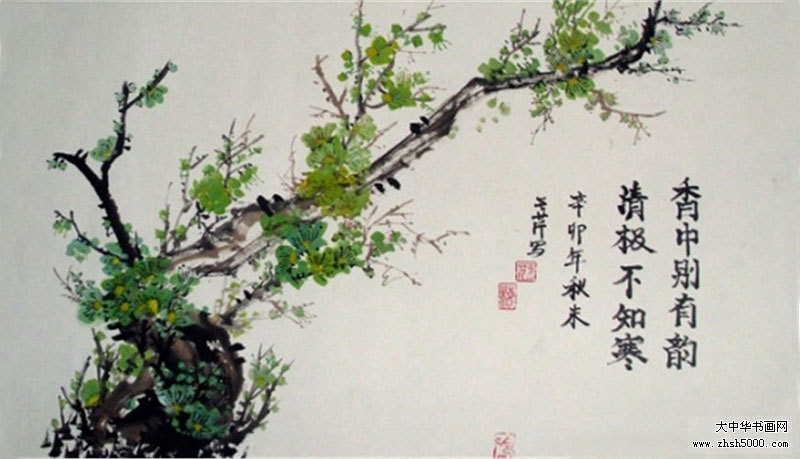 香中别有韵
清极不知寒
辛卯年秋末
芹写
大中华书画网
www.zhsh5000.com